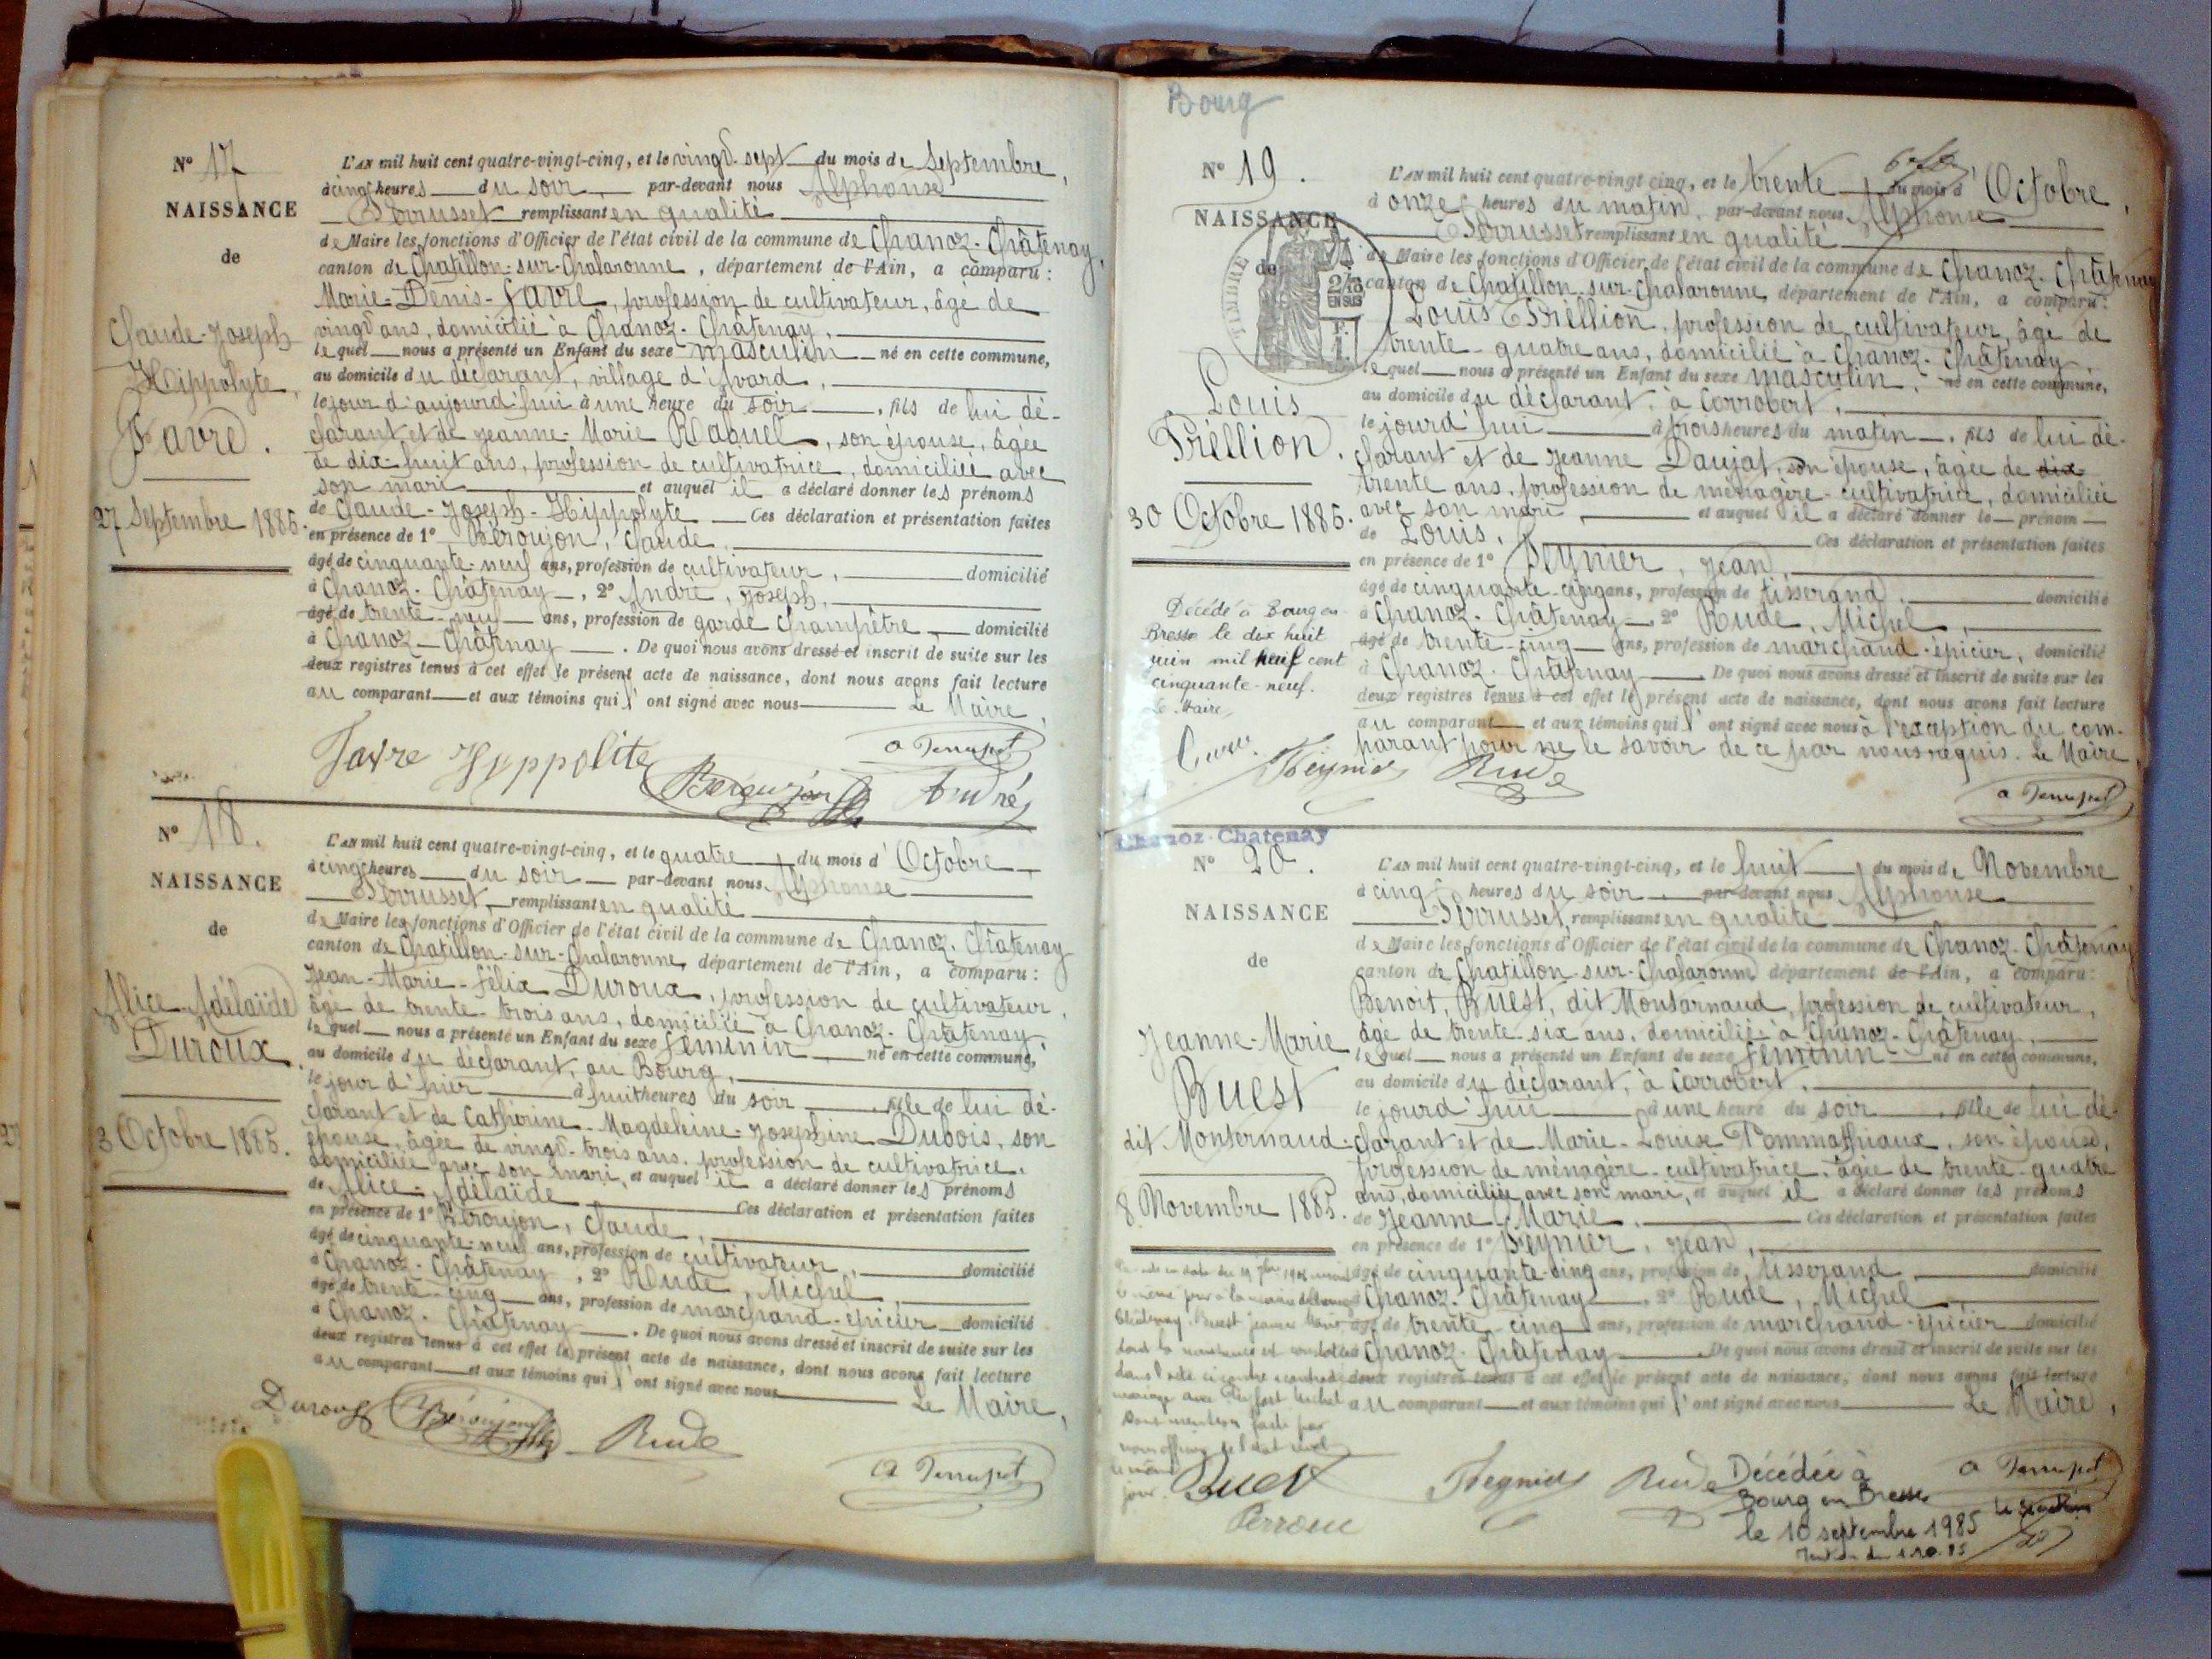 N° 17
NAISSANCE
de
Claude-Joseph
Hippolyte,
Favre.
27 Septembre 1885.
L'AN mil huit cent quatre-vingt-cinq, et le vingt-sept du mois de Septembre,
à cinq heures du soir, par-devant nous Alphonse
Perrusset remplissant en qualité
de Maire les fonctions d'Officier de l'état civil de la commune de Chanoz-Châtenay,
canton de Chatillon-sur-Chalaronne, département de l'Ain, a comparu :
Marie-Denis-Favre, profession de cultivateur, âgé de
vingt ans, domicilié à Chanoz-Châtenay,
lequel nous a présenté un Enfant du sexe masculin né en cette commune,
au domicile du déclarant, village d'Avard,
le jour d'aujourd'hui à une heure du soir, fils de lui dé-
clarant et de Jeanne-Marie Raquel, son épouse, âgée
de dix-huit ans, profession de cultivatrice, domiciliée avec
son mari et auquel il a déclaré donner les prénoms
de Claude-Joseph-Hippolyte Ces déclaration et présentation faites
en présence de 1° Béroujon, Claude,
âgé de cinquante-neuf ans, profession de cultivateur, domicilié
à Chanoz-Châtenay, 2° André, Joseph,
âgé de trente-neuf ans, profession de garde champêtre, domicilié
à Chanoz-Châtenay. De quoi nous avons dressé et inscrit de suite sur les
deux registres tenus à cet effet le présent acte de naissance, dont nous avons fait lecture
au comparant et aux témoins qui l'ont signé avec nous Le Maire,
Favre Hyppolite Béroujon André
a Perrusset
N° 18.
NAISSANCE
de
Alice-Adélaïde
Duroux.
3 Octobre 1885.
L'AN mil huit cent quatre-vingt-cinq, et le quatre du mois d'Octobre
à cinq heures du soir par-devant nous Alphonse
Perrusset, remplissant en qualité
de Maire les fonctions d'Officier de l'état civil de la commune de Chanoz-Châtenay
canton de Chatillon-sur-Chalaronne, département de l'Ain, a comparu :
Jean-Marie-Félix Duroux, profession de cultivateur,
âgé de trente-trois ans, domicilié à Chanoz-Châtenay,
lequel nous a présenté un Enfant du sexe féminin né en cette commune,
au domicile du déclarant, au Bourg,
le jour d'hier à huit heures du soir, fille de lui dé-
clarant et de Catherine-Magdeleine-Joséphine Dubois, son
épouse, âgée de vingt-trois ans, profession de cultivatrice,
domiciliée avec son mari, et auquel il a déclaré donner les prénoms
de Alice-Adélaïde Ces déclaration et présentation faites
en présence de 1° Béroujon, Claude,
âgé de cinquante-neuf ans, profession de cultivateur, domicilié
à Chanoz-Châtenay, 2° Rude, Michel,
âgé de trente-cinq ans, profession de marchand-épicier domicilié
à Chanoz-Châtenay. De quoi nous avons dressé et inscrit de suite sur les
deux registres tenus à cet effet le présent acte de naissance, dont nous avons fait lecture
au comparant et aux témoins qui l'ont signé avec nous Le Maire,
Duroux Béroujon Rude
a Perrusset
Bourg
N° 19.
NAISSANCE
de
TIMBRE
2/10 EN SUS
Louis
Fréllion.
30 Octobre 1885.
Décédé à Bourg en
Bresse le dix huit
juin mil neuf cent
cinquante-neuf.
Le Maire
L'AN mil huit cent quatre-vingt cinq, et le trente du mois d'Octobre,
à onze heures du matin, par-devant nous Alphonse
Perrusset remplissant en qualité
de Maire les fonctions d'Officier de l'état civil de la commune de Chanoz-Châtenay
canton de Chatillon-sur-Chalaronne, département de l'Ain, a comparu :
Louis Fréllion, profession de cultivateur, âgé de
trente-quatre ans, domicilié à Chanoz-Châtenay,
lequel nous a présenté un Enfant du sexe masculin, né en cette commune,
au domicile du déclarant, à Corrobert,
le jourd'hui à trois heures du matin, fils de lui dé-
clarant et de Jeanne Daujat, son épouse, âgée de dix
trente ans, profession de ménagère-cultivatrice, domiciliée
avec son mari, et auquel il a déclaré donner le prénom
de Louis, Ces déclaration et présentation faites
en présence de 1° Peynier, Jean,
âgé de cinquante-cinq ans, profession de tisserand, domicilié
à Chanoz-Châtenay, 2° Rude, Michel,
âgé de trente-cinq ans, profession de marchand-épicier, domicilié
à Chanoz-Châtenay De quoi nous avons dressé et inscrit de suite sur les
deux registres tenus à cet effet le présent acte de naissance, dont nous avons fait lecture
au comparant et aux témoins qui l'ont signé avec nous à l'exception du com-
parant pour ne le savoir de ce par nous requis. Le Maire,
Peynier Rude
a Perrusset
Chanoz-Chatenay
N° 20.
NAISSANCE
de
Jeanne-Marie
Buest
dit Monternaud.
8 Novembre 1885.
L'AN mil huit cent quatre-vingt-cinq, et le huit du mois de Novembre,
à cinq heures du soir, par-devant nous Alphonse
Perrusset, remplissant en qualité
de Maire les fonctions d'Officier de l'état civil de la commune de Chanoz-Châtenay
canton de Chatillon-sur-Chalaronne département de l'Ain, a comparu :
Benoit, Buest, dit Montarnaud, profession de cultivateur,
âgé de trente-six ans, domicilié à Chanoz-Châtenay,
lequel nous a présenté un Enfant du sexe féminin né en cette commune,
au domicile du déclarant, à Corrobert,
le jourd'hui à une heure du soir, fille de lui dé-
clarant et de Marie-Louise Pommathiaux, son épouse,
profession de ménagère-cultivatrice, âgée de trente-quatre
ans, domiciliée avec son mari, et auquel il a déclaré donner les prénoms
de Jeanne Marie, Ces déclaration et présentation faites
en présence de 1° Peynier, Jean,
âgé de cinquante-cinq ans, profession de tisserand, domicilié
Chanoz-Châtenay, 2° Rude, Michel,
âgé de trente-cinq ans, profession de marchand-épicier domicilié
Chanoz-Châtenay De quoi nous avons dressé et inscrit de suite sur les
deux registres tenus à cet effet le présent acte de naissance, dont nous avons fait lecture
au comparant et aux témoins qui l'ont signé avec nous Le Maire,
le même jour à la mairie de
Chatenay Buest Jeanne Marie
dont la naissance est constatée
dans l'acte ci contre a contracté
mariage avec Michel
Dont mention faite par
nous officier de l'état civil
le même
jour.
Buest Peynier Rude
a Perrusset
Décédée à
Bourg en Bresse
le 10 septembre 1985